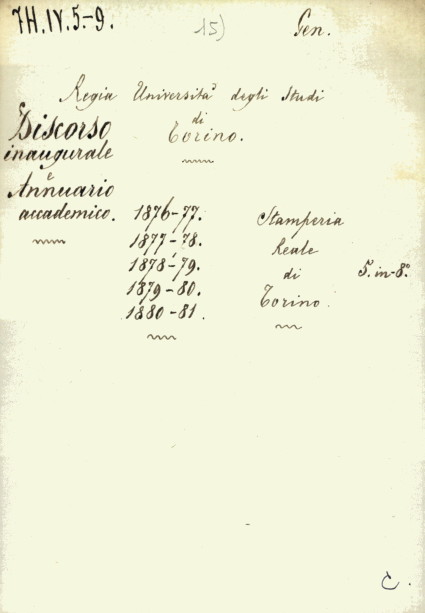 7H.IV.5-9.
15)
Gen.
Regia Università degli Studi
di
Torino.
Discorso
inaugurale
e
Annuario
accademico.
1876-77.
1877-78.
1878-79.
1879-80.
1880-81.
Stamperia
Reale
di
Torino.
5. in-8º
C.